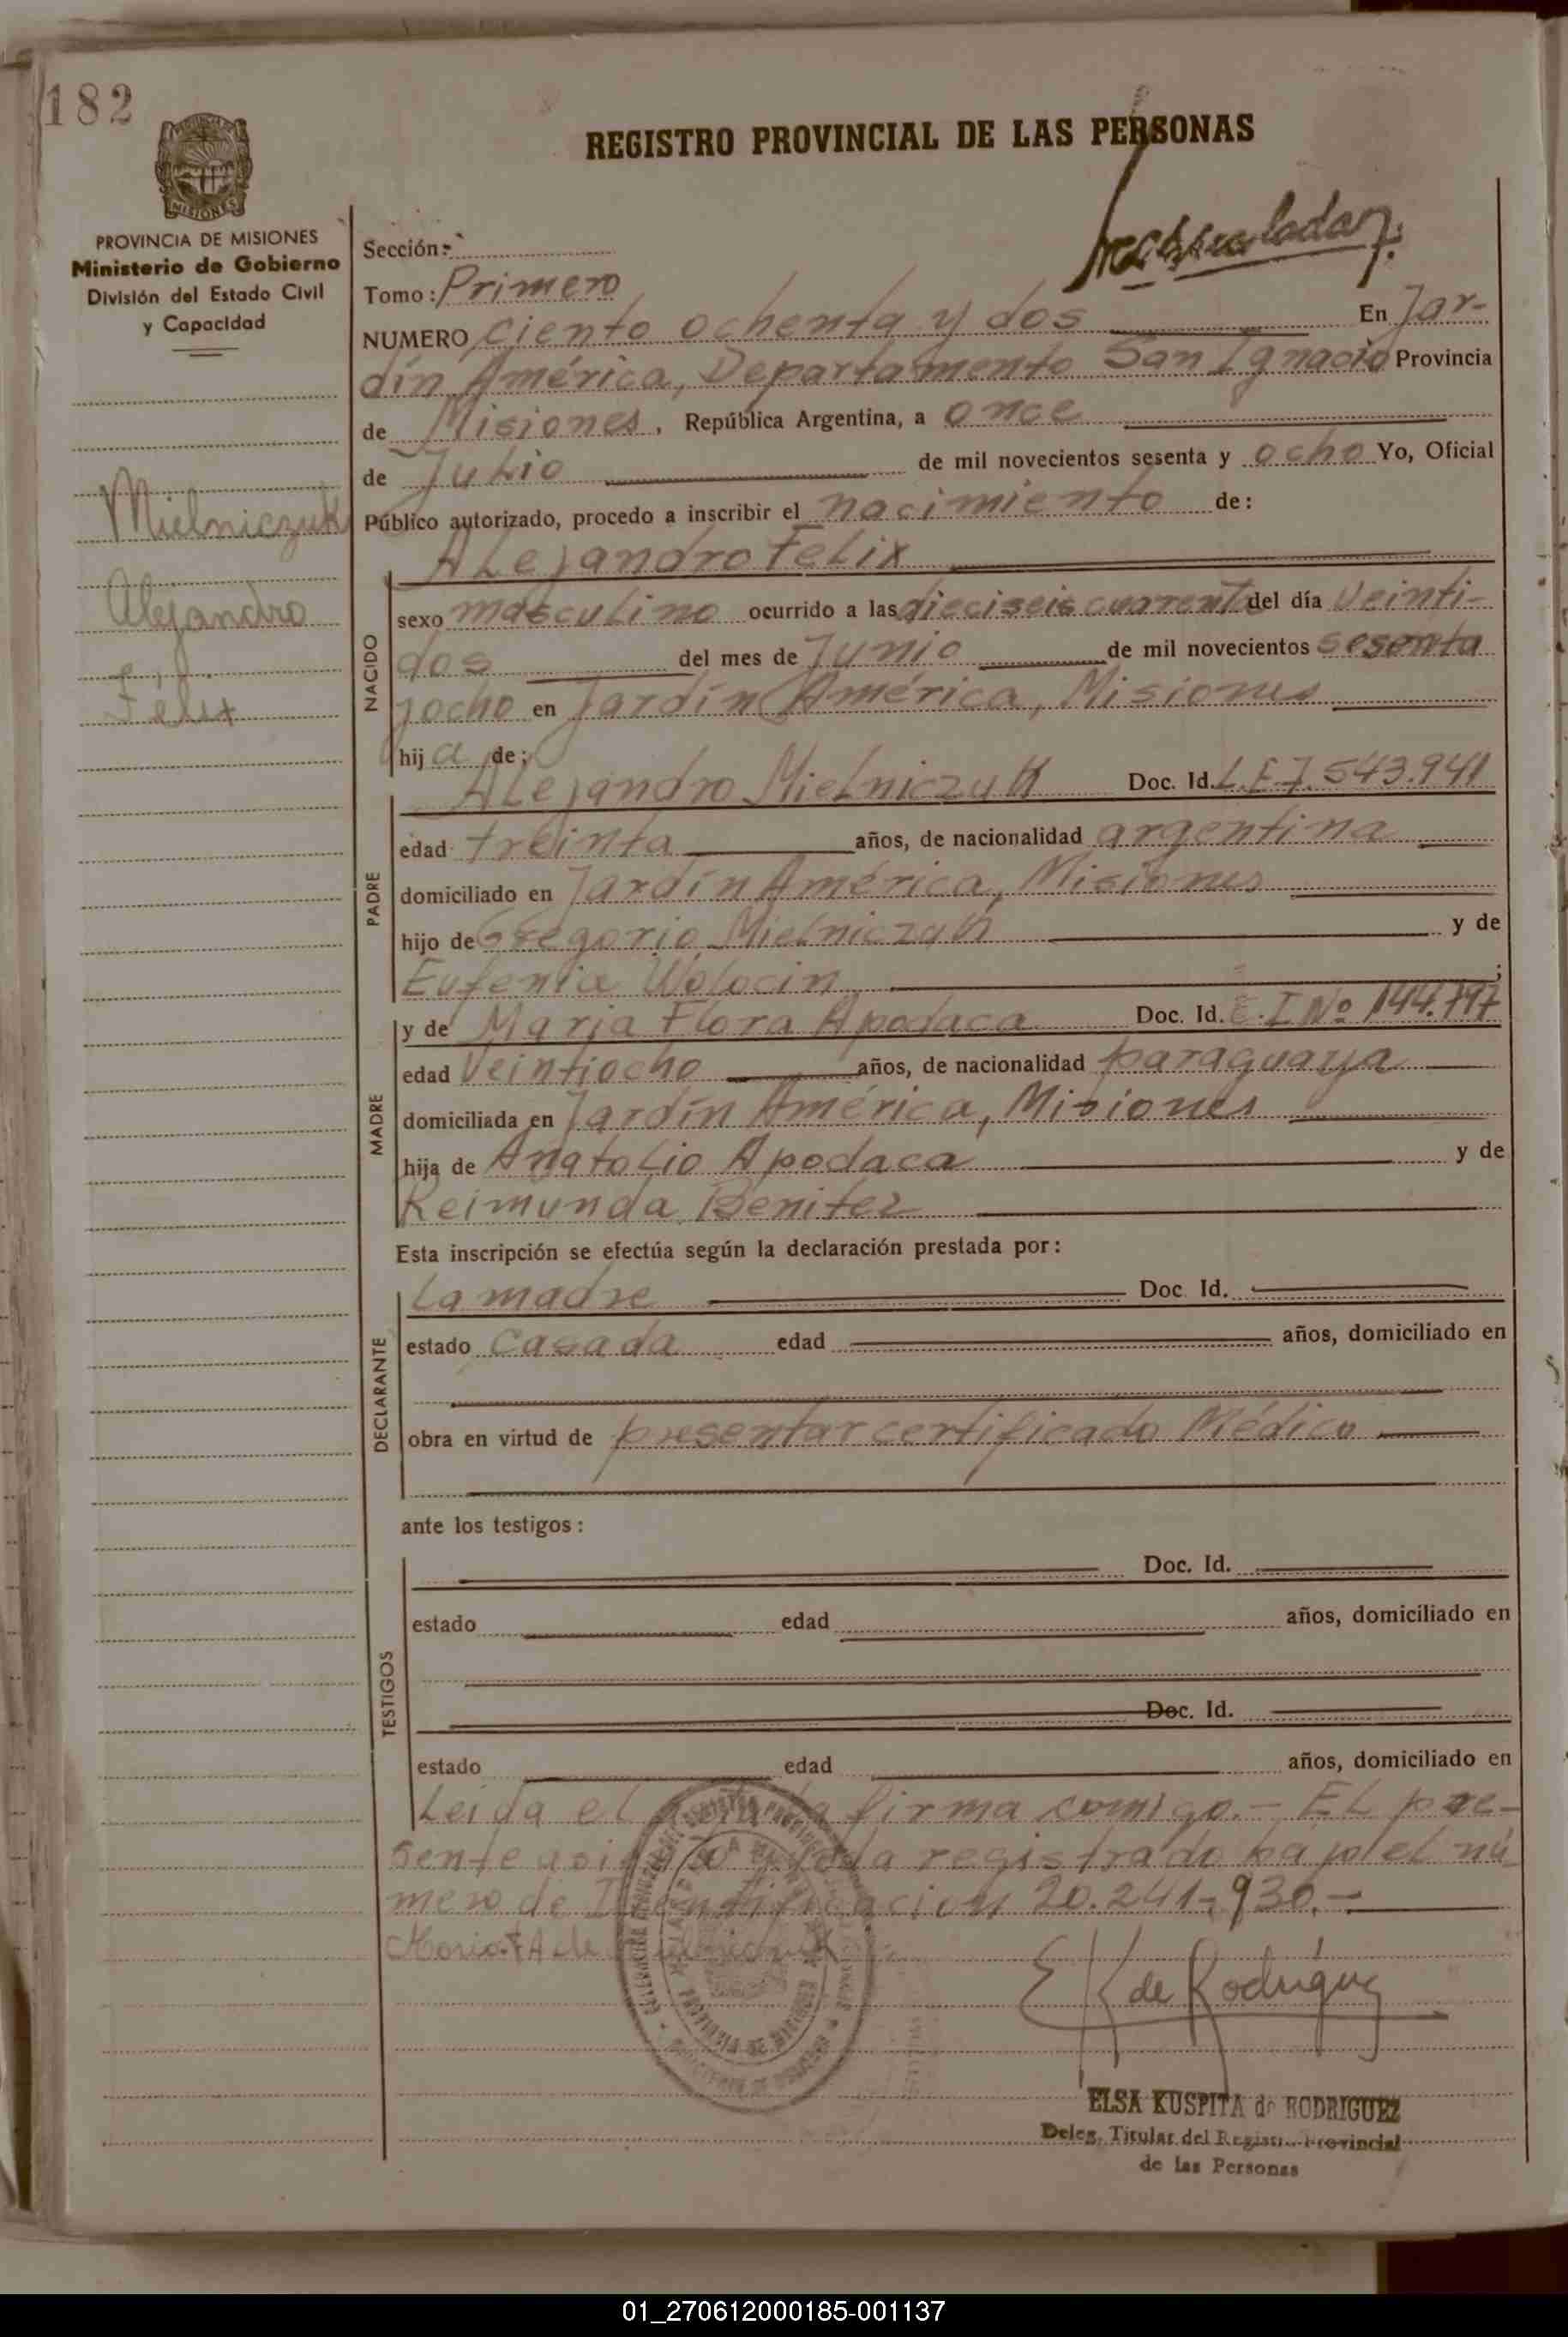 182
REGISTRO PROVINCIAL DE LAS PERSONAS
MISIONES
PROVINCIA DE MISIONES
Ministerio de Gobierno
División del Estado Civil
y Capacidad
Mielniczuk
Alejandro
Félix
Sección:
Tomo: Primero
NUMERO ciento ochenta y dos En Jar-
dín América, Departamento San Ignacio Provincia
de Misiones, República Argentina, a once
de Julio de mil novecientos sesenta y ocho Yo, Oficial
Público autorizado, procedo a inscribir el nacimiento de:
Alejandro Felix
NACIDO
sexo masculino ocurrido a las dieciseis cuarenta del día veinti-
dos del mes de Junio de mil novecientos sesenta
yocho en Jardín América, Misiones
hij a de;
Alejandro Mielniczuk Doc. Id. L.E.7.543.941
PADRE
edad treinta años, de nacionalidad argentina
domiciliado en Jardín América, Misiones
hijo de Gregorio Mielniczuk y de
Eufenia Wolocin ;
MADRE
y de Maria Flora Apodaca Doc. Id. C.I Nº 144.797
edad veintiocho años, de nacionalidad paraguaya
domiciliada en Jardín América, Misiones
hija de Anatolio Apodaca y de
Reimunda Benitez
Esta inscripción se efectúa según la declaración prestada por:
DECLARANTE
La madre Doc. Id.
estado casada edad años, domiciliado en
obra en virtud de presentar certificado Médico
ante los testigos:
TESTIGOS
Doc. Id.
estado edad años, domiciliado en
Doc. Id.
estado edad años, domiciliado en
Leida el acta la firma comigo.- El pre-
sente registrado bajo el nú-
mero de Identificacion 20.241.930.-
Maria F A de Mielniczuk
E K de Rodríguez
ELSA KUSPITA de RODRIGUEZ
Deleg. Titular del Registro Provincial
de las Personas
01_270612000185-001137